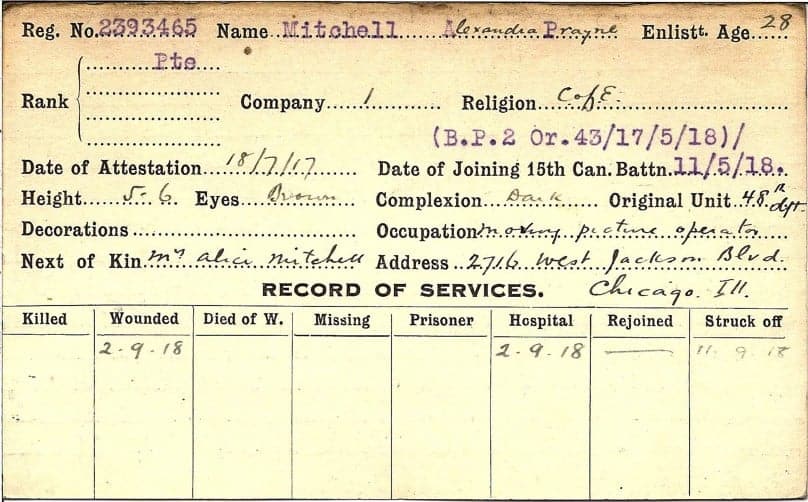 Reg. No. 2393465 Name Mitchell Alexandra Prayne Enlistt. Age 28
Rank Pte Company 1 Religion C of E.
(B.P.2 Or.43/17/5/18)/
Date of Attestation 18/7/17 Date of Joining 15th Can. Battn. 11/5/18.
Height 5-6. Eyes Brown Complexion Dark Original Unit 48th
Decorations Occupation moving picture operator
Next of Kin Mrs Alice Mitchell Address 2716 West Jackson Blvd.
Chicago. Ill.
RECORD OF SERVICES.
Killed Wounded Died of W. Missing Prisoner Hospital Rejoined Struck off
2-9-18 2-9-18 11-9-18